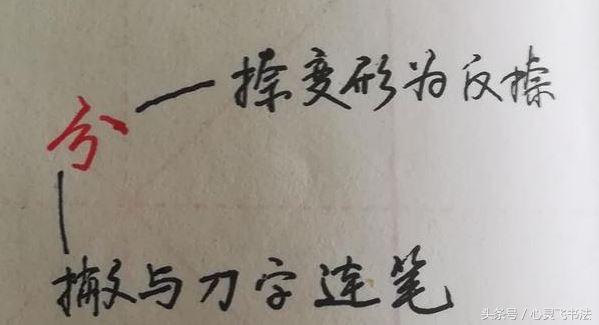 捺变形为反捺
分
撇与刀字连笔
头条号 / 心灵飞书法